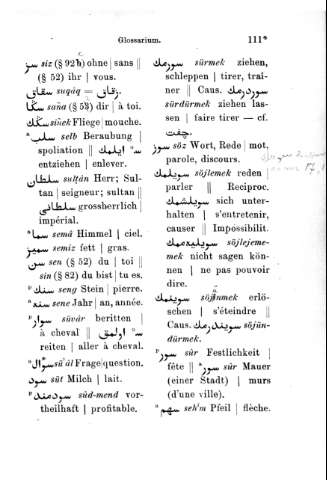 Glossarium. 111*
سز siz (§ 92b) ohne | sans ||
(§ 52) ihr | vous.
سقاق suqáq = زقاق.
سڭا saña (§ 53) dir | à toi.
سڭك siñek Fliege | mouche.
سلب selb Beraubung |
spoliation || ايلمك
entziehen | enlever.
سلطان sultán Herr; Sul-
tan | seigneur; sultan ||
سلطانى grossherrlich |
impérial.
سما semá Himmel | ciel.
سميز semiz fett | gras.
سن sen (§ 52) du | toi ||
sin (§ 82) du bist | tu es.
سنك seng Stein | pierre.
سنه sene Jahr | an, année.
سوار süvár beritten |
à cheval || اولمق
reiten | aller à cheval.
سؤال süál Frage | question.
سود süt Milch | lait.
سودمند süd-mend vor-
theilhaft | profitable.
سورمك sürmek ziehen,
schleppen | tirer, traî-
ner || Caus. سوردرمك
sürdürmek ziehen las-
sen | faire tirer — cf.
چفت.
سوز söz Wort, Rede | mot,
parole, discours.
سويلمك söjlemek reden |
parler || Reciproc.
سويلشمك sich unter-
halten | s'entretenir,
causer || Impossibilit.
سويليهممك söjlejeme-
mek nicht sagen kön-
nen | ne pas pouvoir
dire.
سوينمك söjünmek erlö-
schen | s'éteindre ||
Caus. سويندرمك söjün-
dürmek.
سور súr Festlichkeit |
fête || سور súr Mauer
(einer Stadt) | murs
(d'une ville).
سهم sehm Pfeil | flèche.